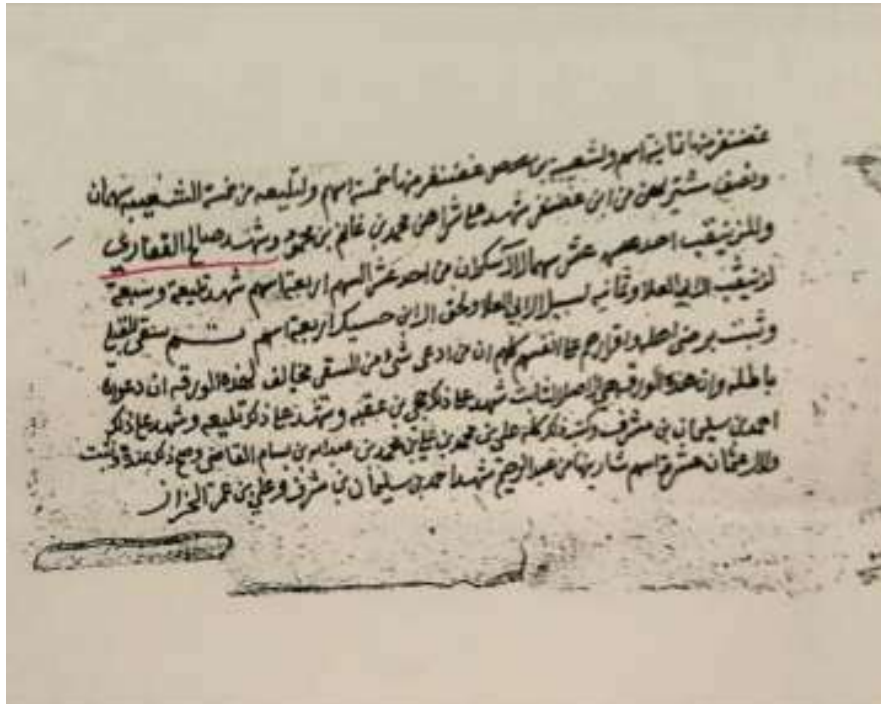 غضنفر منها ثمانية اسهم ولشعيب بن غضنفر منها خمسة اسهم ولتليعه من خمسة الشعيب سهمان
ونصف مشتريهن من ابن غضنفر شهد على شراهن محمد بن غانم بن محمود وشهد صالح القفاري
والمزنيقب احد عشر سهما لال من احد عشر السهم اربعة اسهم شهد تليعة وسبعة
لزنيقب لابي العلا وثمانيه لسبيل ابي العلا ولحق اربعة اسهم سقي القبلي
وثبت برضى اهله واقرارهم على انفسهم كلهم ان من ادعى شئ من السقي مخالف لهذه الورقه ان دعواه
باطله وان هذه الورقه هي الاصل الثابت شهد على ذكر علي بن عقبه وشهد على ذكر تليعه وشهد على ذكر
احمد بن سليمان بن مشرف وكتبه ذكر كله علي بن محمد بن علي بن محمد بن عبدالله بن بسام القاضي وصح ذكر عنده وثبت
ولال عثمان عشرة اسهم شارينها من عبد الرحيم شهد احمد بن سليمان بن مشرف وعلي بن عمر الخراز